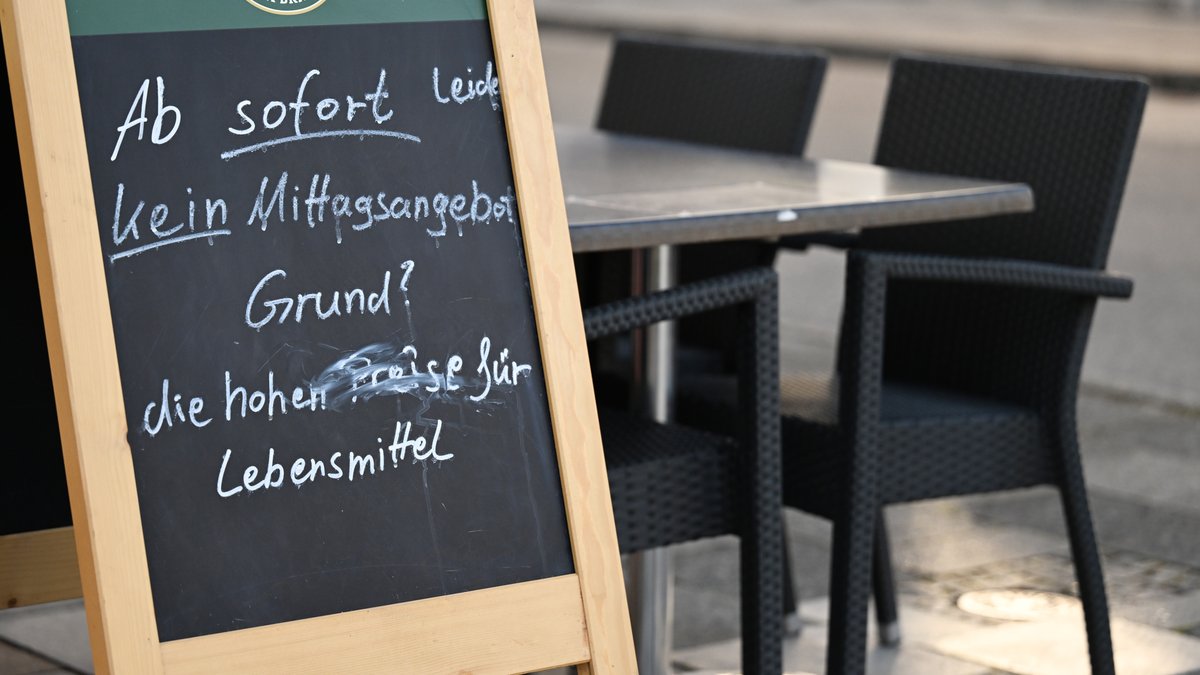 Ab sofort Leide
kein Mittagsangebot
Grund?
die hohen Preise für
Lebensmittel